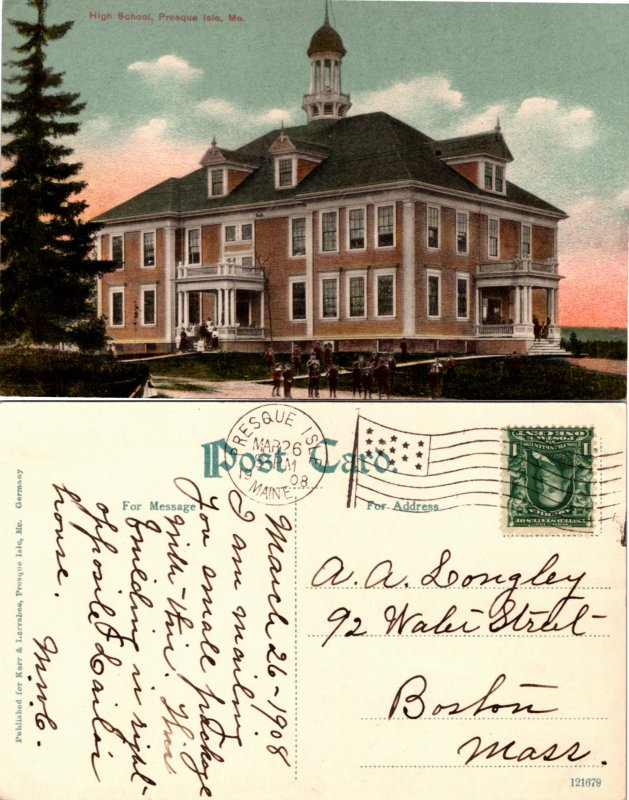 High School, Presque Isle, Me.
Post Card.
For Message
For Address
PRESQUE ISLE
MAR 26
19 08
MAINE
March 26-1908
I am mailing
you small package
with this. This
building is right
opposite
house.
M.W.C.
A. A. Longley
92 Water Street
Boston
Mass.
121679
Published for Kerr & Larrabee, Presque Isle, Me. Germany